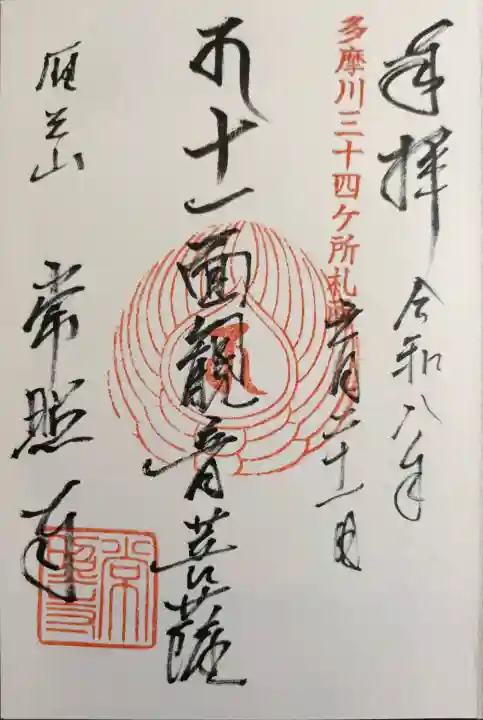 奉拝
令和八年
多摩川三十四ケ所札所
五月二十一日
十一面観音菩薩
常照寺